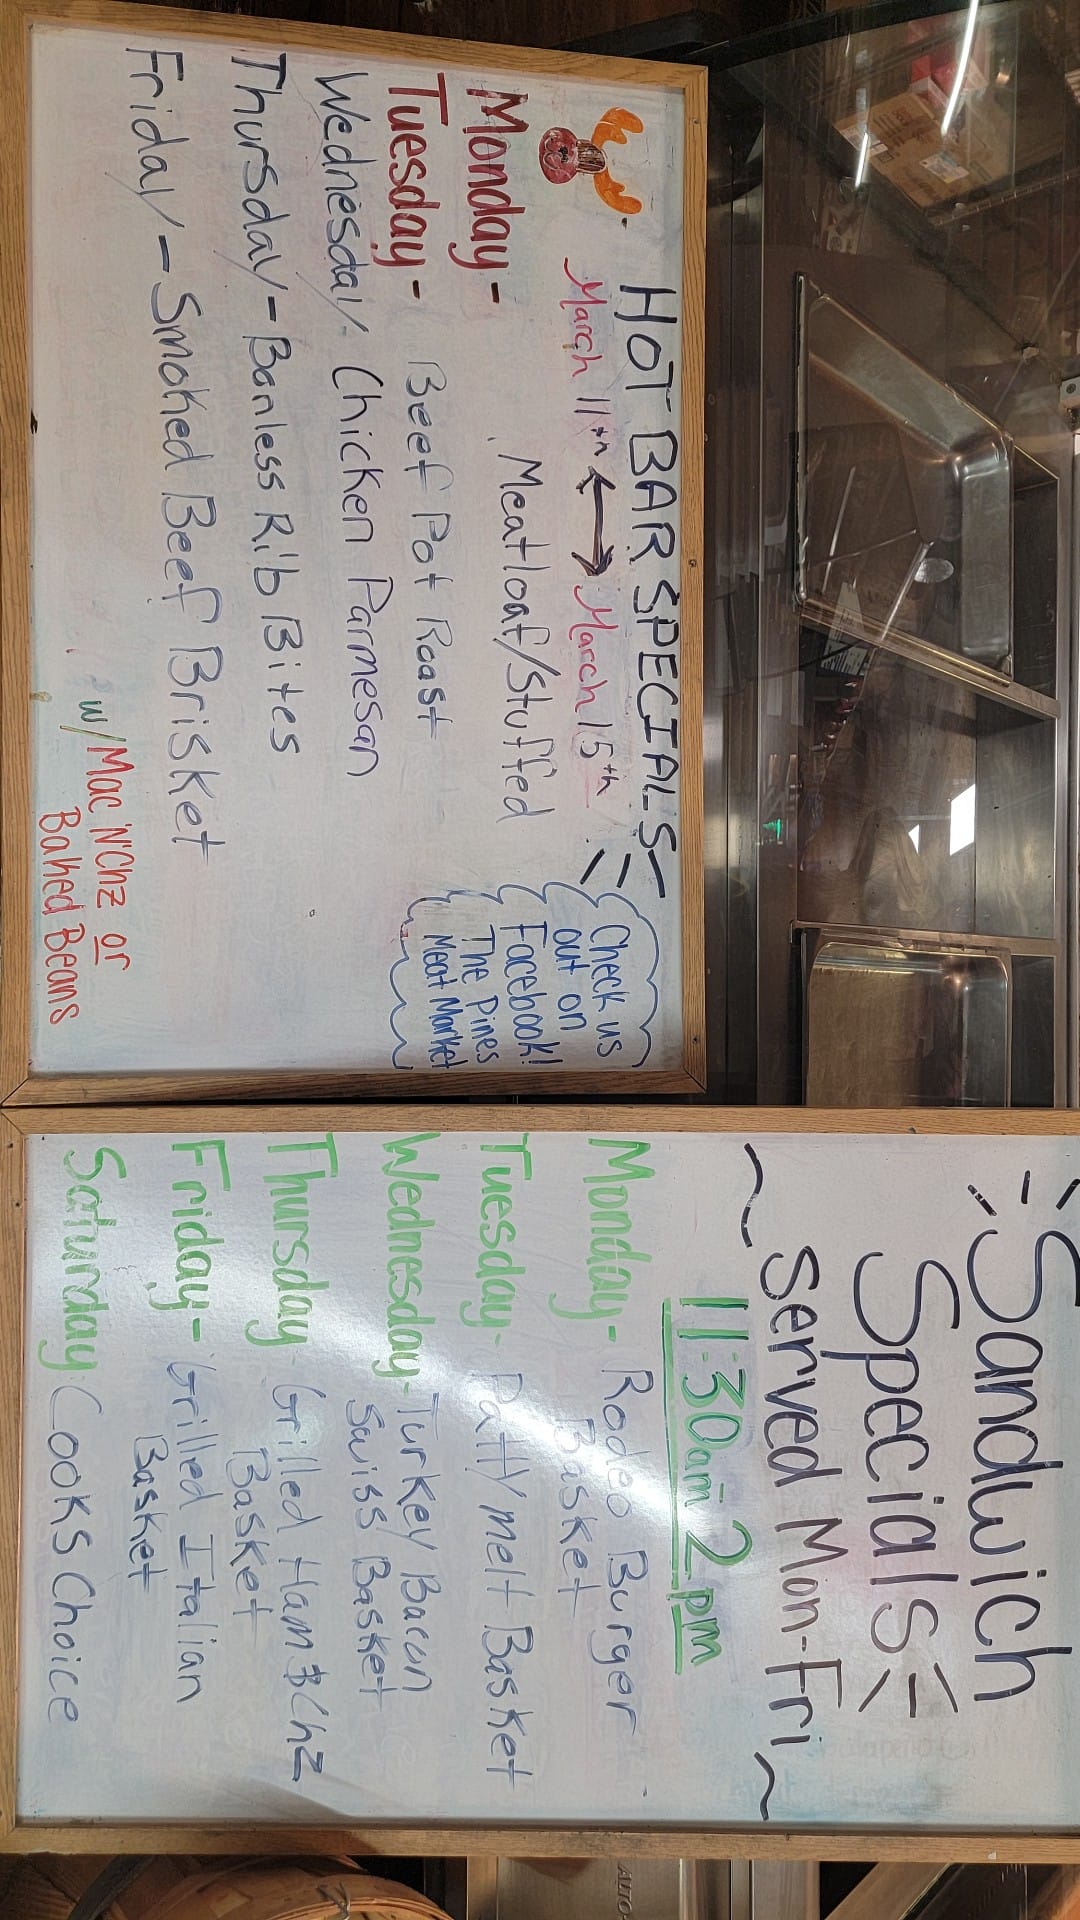 HOT BAR SPECIALS
March 11th ↔ March 15th
Monday - Meatloaf/Stuffed
Tuesday - Beef Pot Roast
Wednesday - Chicken Parmesan
Thursday - Bonless Rib Bites
Friday - Smoked Beef Brisket
w/ Mac N' Chz or
Baked Beans
Check us
out on
Facebook!
The Pines
Meat Market
Sandwich
Specials
~ Served Mon-Fri ~
11:30am - 2pm
Monday - Rodeo Burger
Basket
Tuesday - Patty melt Basket
Wednesday - Turkey Bacon
Swiss Basket
Thursday - Grilled Ham & Chz
Basket
Friday - Grilled Italian
Basket
Saturday - Cooks Choice
AUTO-